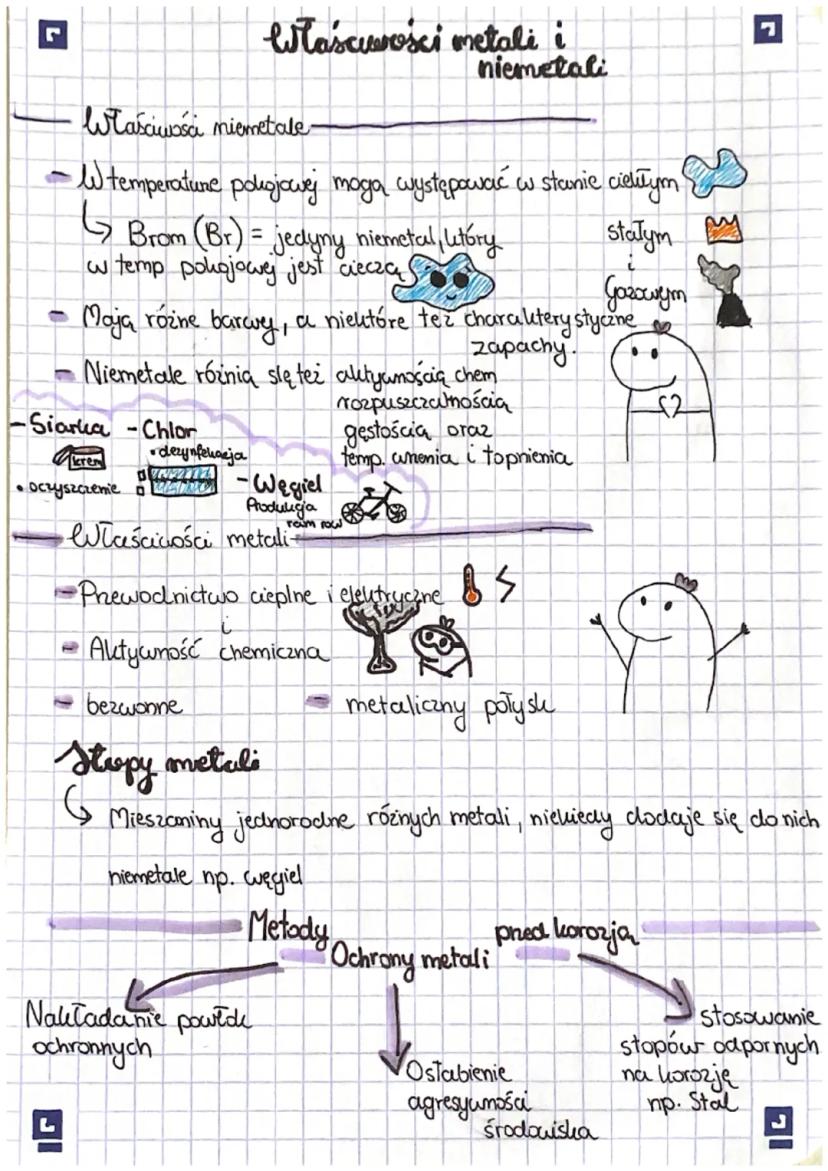 Właściwości metali i
niemetali
Właściwości niemetale
- W temperaturze pokojowej mogą występować w stanie ciekłym
↳ Brom (Br) = jedyny niemetal, który
w temp pokojowej jest cieczą
stałym
i
Gazowym
- Mają różne barwy, a niektóre też charakterystyczne
zapachy.
- Niemetale różnią się też aktywnością chem
rozpuszczalnością
gęstością oraz
temp. wrzenia i topnienia
- Siarka
krem
• oczyszczenie
- Chlor
• dezynfekcja
- Węgiel
Produkcja
ram row
Właściwości metali
- Przewodnictwo cieplne i elektryczne
i
- Aktywność chemiczna
- bezwonne
- metaliczny połysk
Stopy metali
↳ Mieszaniny jednorodne różnych metali, niekiedy dodaje się do nich
niemetale np. węgiel
Metody przed korozją
Ochrony metali
Nakładanie powłok
ochronnych
Osłabienie
agresywności
środowiska
stosowanie
stopów odpornych
na korozję
np. Stal